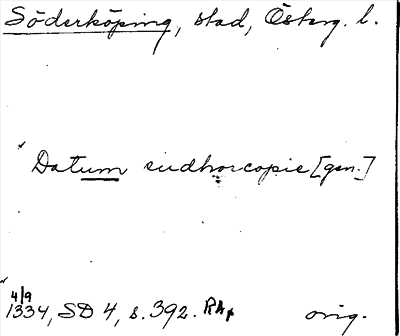 Söderköping, stad, Österg. l.
Datum sudhorcopie [gen.]
4/9
1334, SD 4, s. 392. RAp orig.